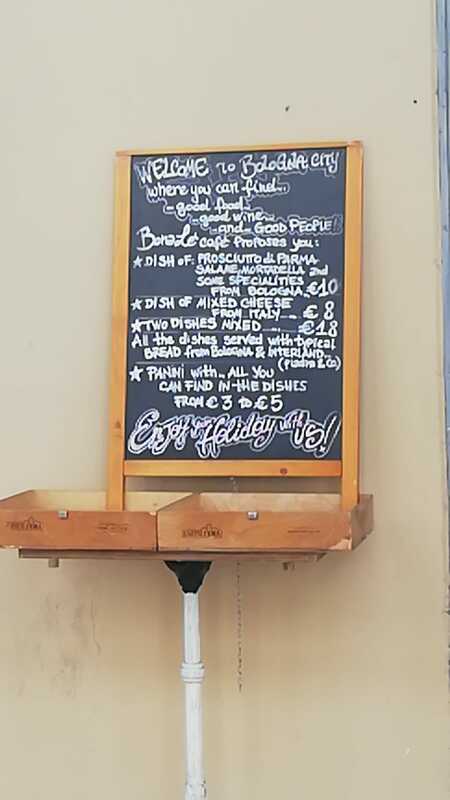 WELCOME TO BOLOGNA CITY
where you can find...
... good food...
... good wine...
... and... GOOD PEOPLE!
café proposes you:
★ DISH OF: PROSCIUTTO di PARMA
SALAME, MORTADELLA and
SOME SPECIALITIES
FROM BOLOGNA... €10
★ DISH OF MIXED CHEESE
FROM ITALY ... € 8
★ TWO DISHES MIXED ... €18
All the dishes served with typical
BREAD from BOLOGNA & INTERLAND...
★ PANINI with... ALL YOU
CAN FIND IN THE DISHES
FROM € 3 TO € 5
Enjoy your Holiday with US!!